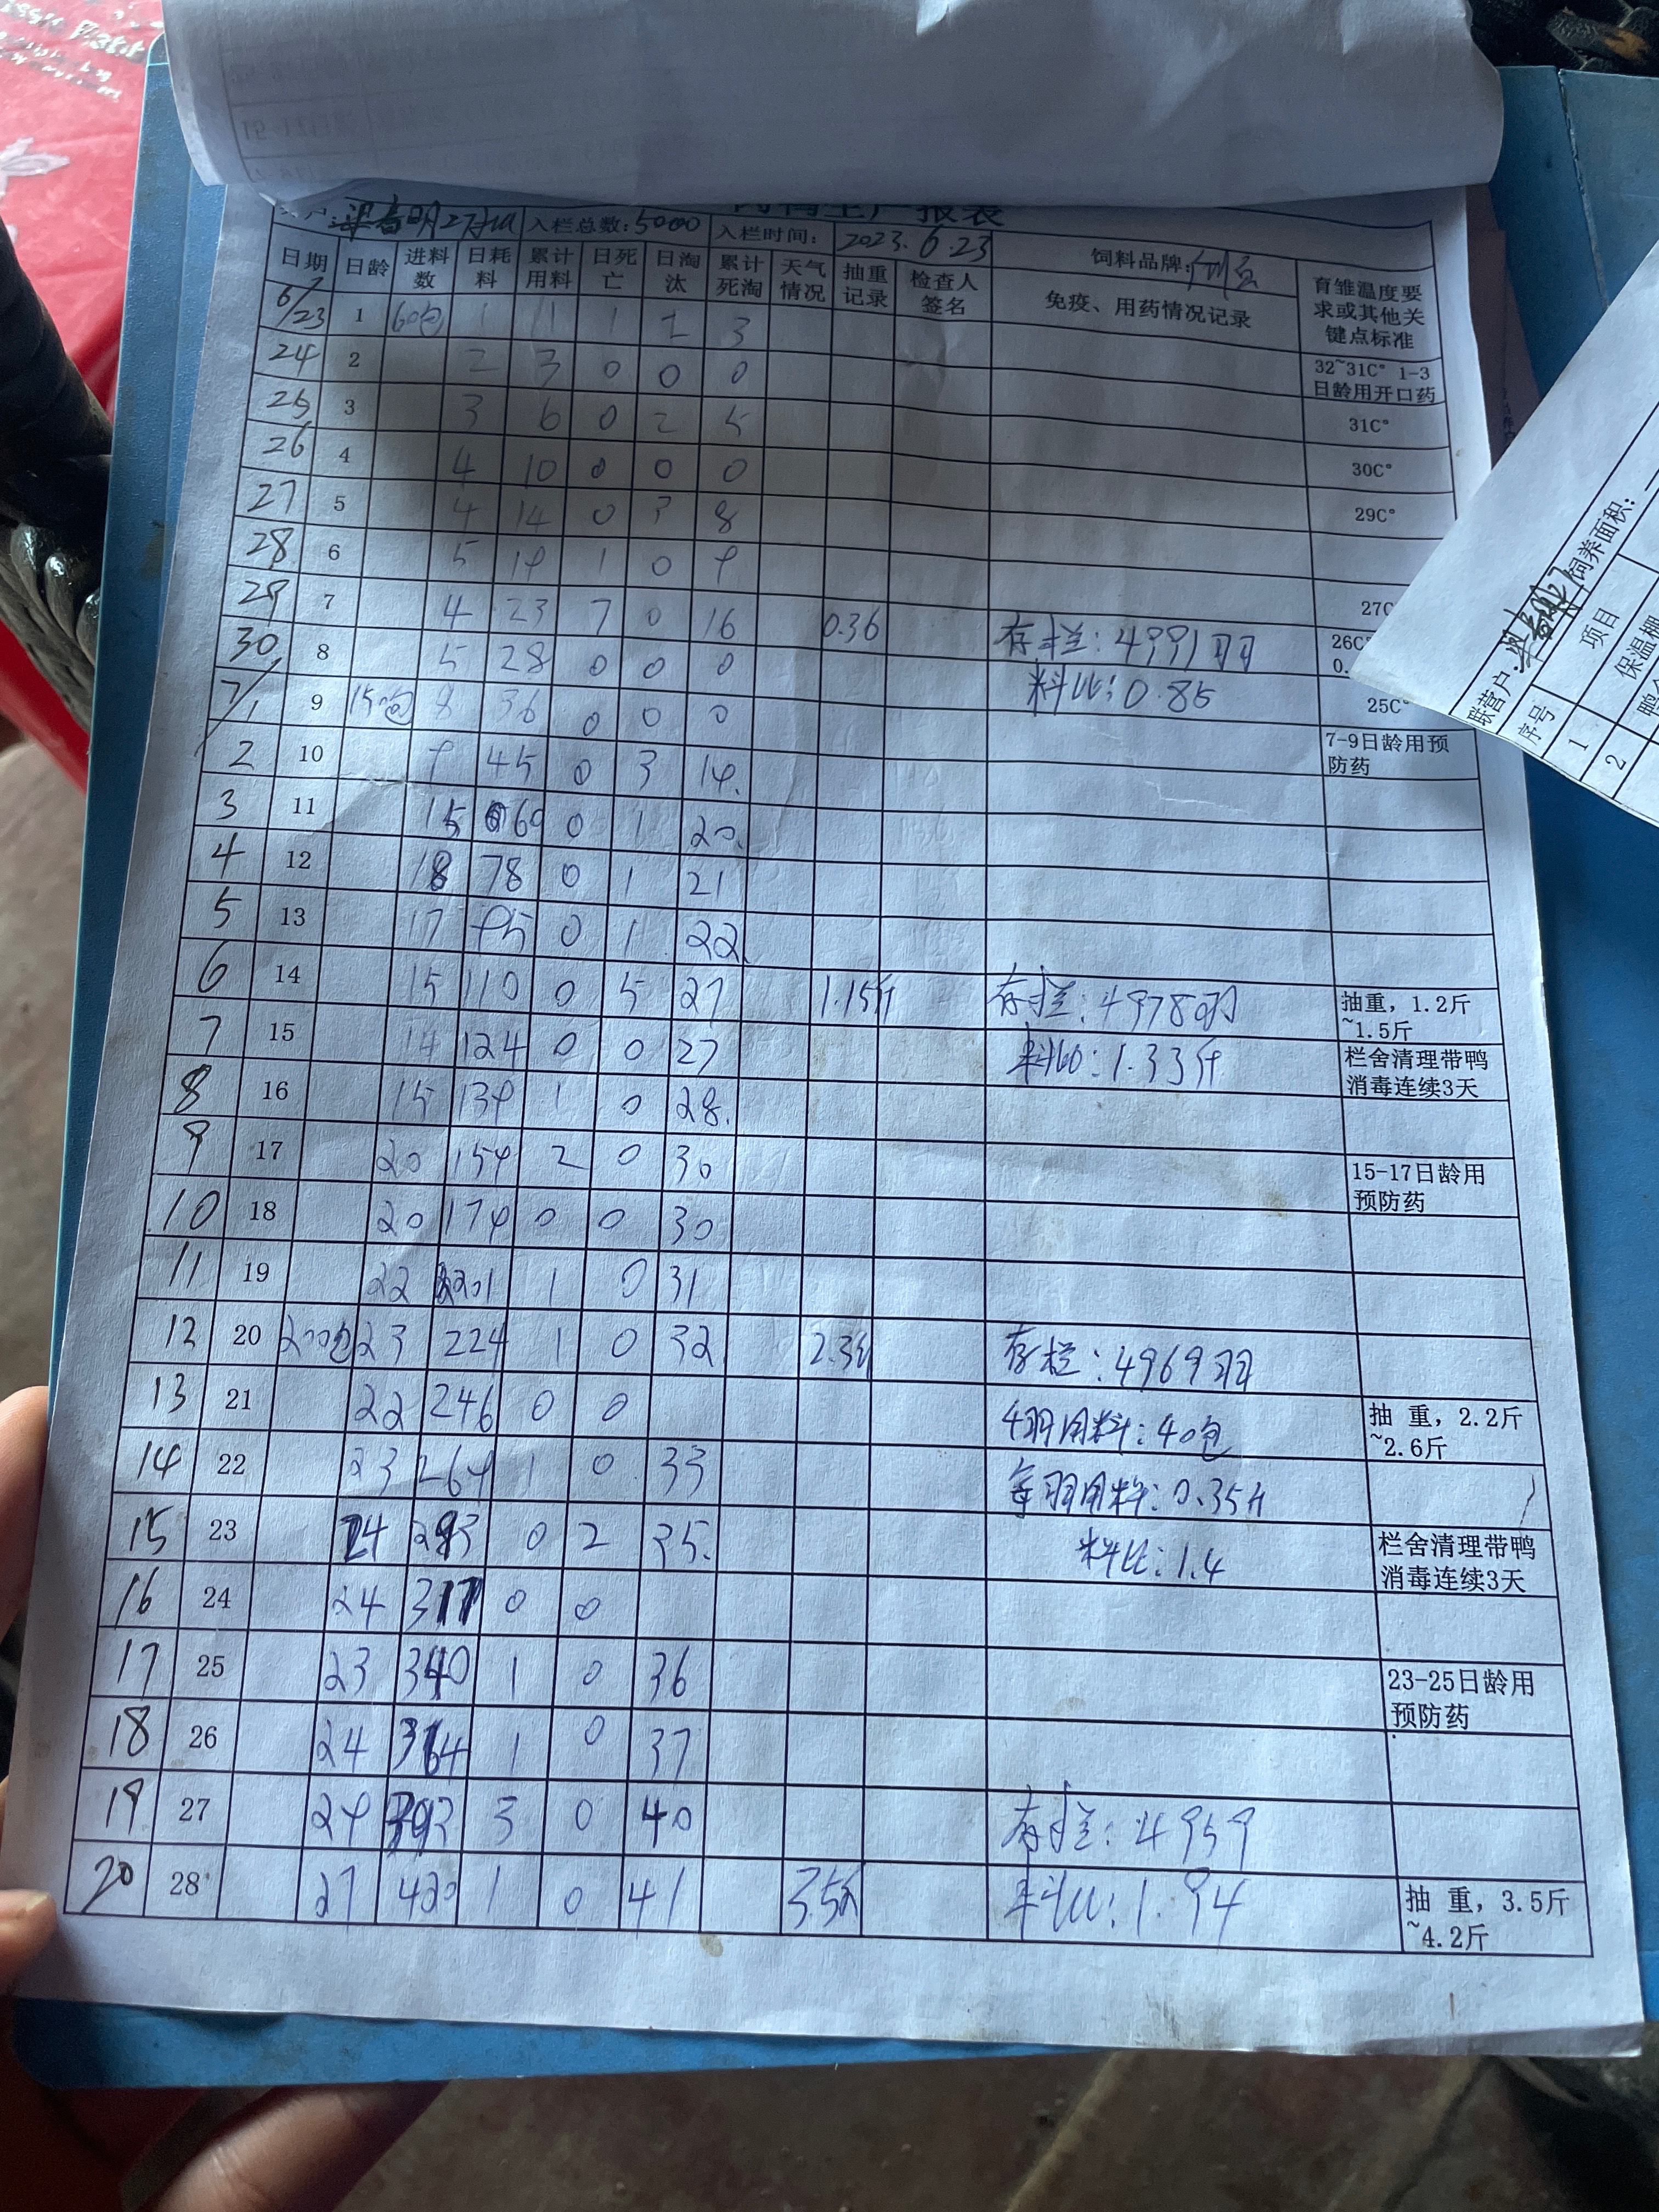 入栏总数:5000 入栏时间: 2023.6.23 饲料品牌:
日期 日龄 进料数 日耗料 累计用料 日死亡 日淘汰 累计死淘 天气情况 抽重记录 检查人签名 免疫、用药情况记录 育雏温度要求或其他关键点标准
6/23 1 60包 1 1 2 3
24 2 2 3 0 0 0 32~31C° 1-3日龄用开口药
25 3 3 6 0 2 5 31C°
26 4 4 10 0 0 0 30C°
27 5 4 14 0 3 8 29C°
28 6 5 19 1 0 9
29 7 4 23 7 0 16 0.36 存栏:4991羽 27C
30 8 5 28 0 0 0 料比:0.85 26C
7/1 9 150包 8 36 0 0 0 25C°
2 10 9 45 0 3 19. 7-9日龄用预防药
3 11 15 60 0 1 20.
4 12 18 78 0 1 21
5 13 17 95 0 1 22
6 14 15 110 0 5 27 1.15斤 存栏:4978羽 抽重，1.2斤~1.5斤
7 15 14 124 0 0 27 料比:1.33斤 栏舍清理带鸭消毒连续3天
8 16 15 139 1 0 28.
9 17 20 159 2 0 30 15-17日龄用预防药
10 18 20 179 0 0 30
11 19 22 201 1 0 31
12 20 200包 23 224 1 0 32 2.3斤 存栏:4969羽
13 21 22 246 0 0 用料:40包 抽 重，2.2斤~2.6斤
14 22 23 269 1 0 33 每羽用料:0.35斤
15 23 24 293 0 2 35. 料比:1.4 栏舍清理带鸭消毒连续3天
16 24 24 317 0 0
17 25 23 340 1 0 36 23-25日龄用预防药
18 26 24 364 1 0 37
19 27 29 393 3 0 40 存栏:4959
20 28 27 420 1 0 41 3.5斤 料比:1.94 抽 重，3.5斤~4.2斤
联营户: 饲养面积:
序号 项目
1 保温棚
2